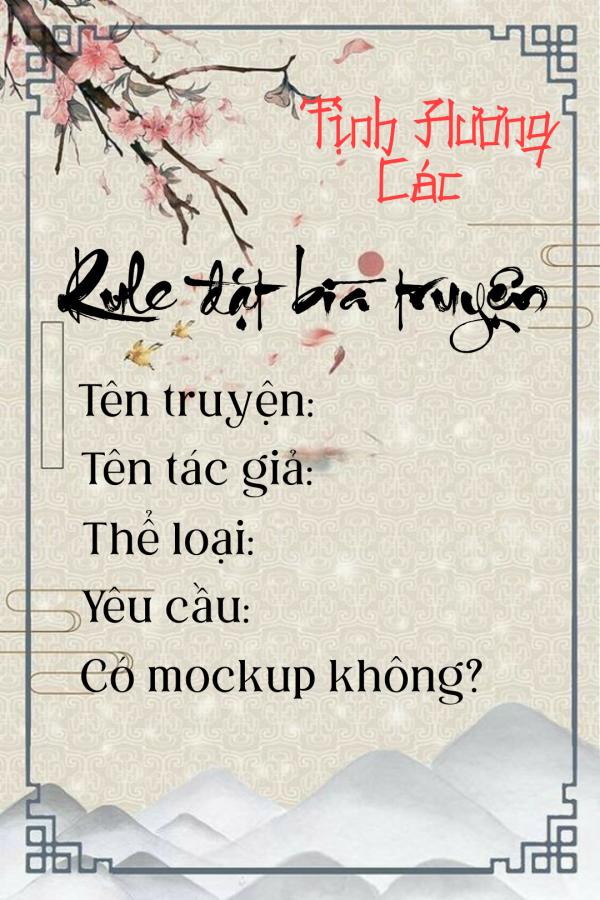 Tịnh Hương
Các
Rule đặt bìa truyện
Tên truyện:
Tên tác giả:
Thể loại:
Yêu cầu:
Có mockup không?